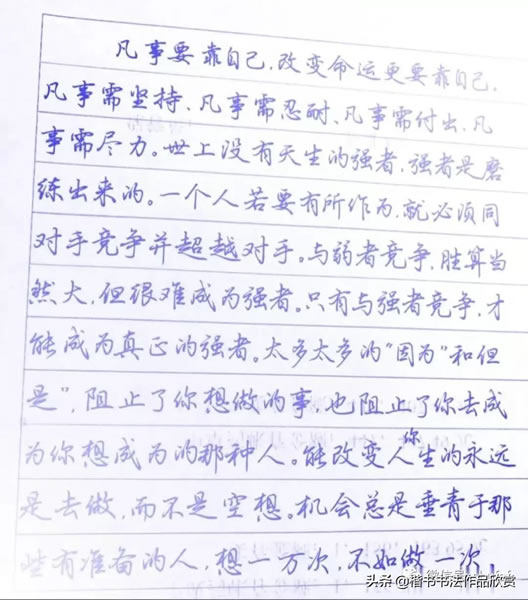 凡事要靠自己,改变命运更要靠自己,
凡事需坚持、凡事需忍耐、凡事需付出、凡
事需尽力。世上没有天生的强者,强者是磨
练出来的。一个人若要有所作为,就必须同
对手竞争并超越对手。与弱者竞争,胜算当
然大,但很难成为强者。只有与强者竞争,才
能成为真正的强者。太多太多的“因为”和“但
是”,阻止了你想做的事,也阻止了你去成
为你想成为的那种人。能改变人你生的永远
是去做,而不是空想。机会总是垂青于那
些有准备的人,想一万次,不如做一次!
头条@楷书书法作品欣赏